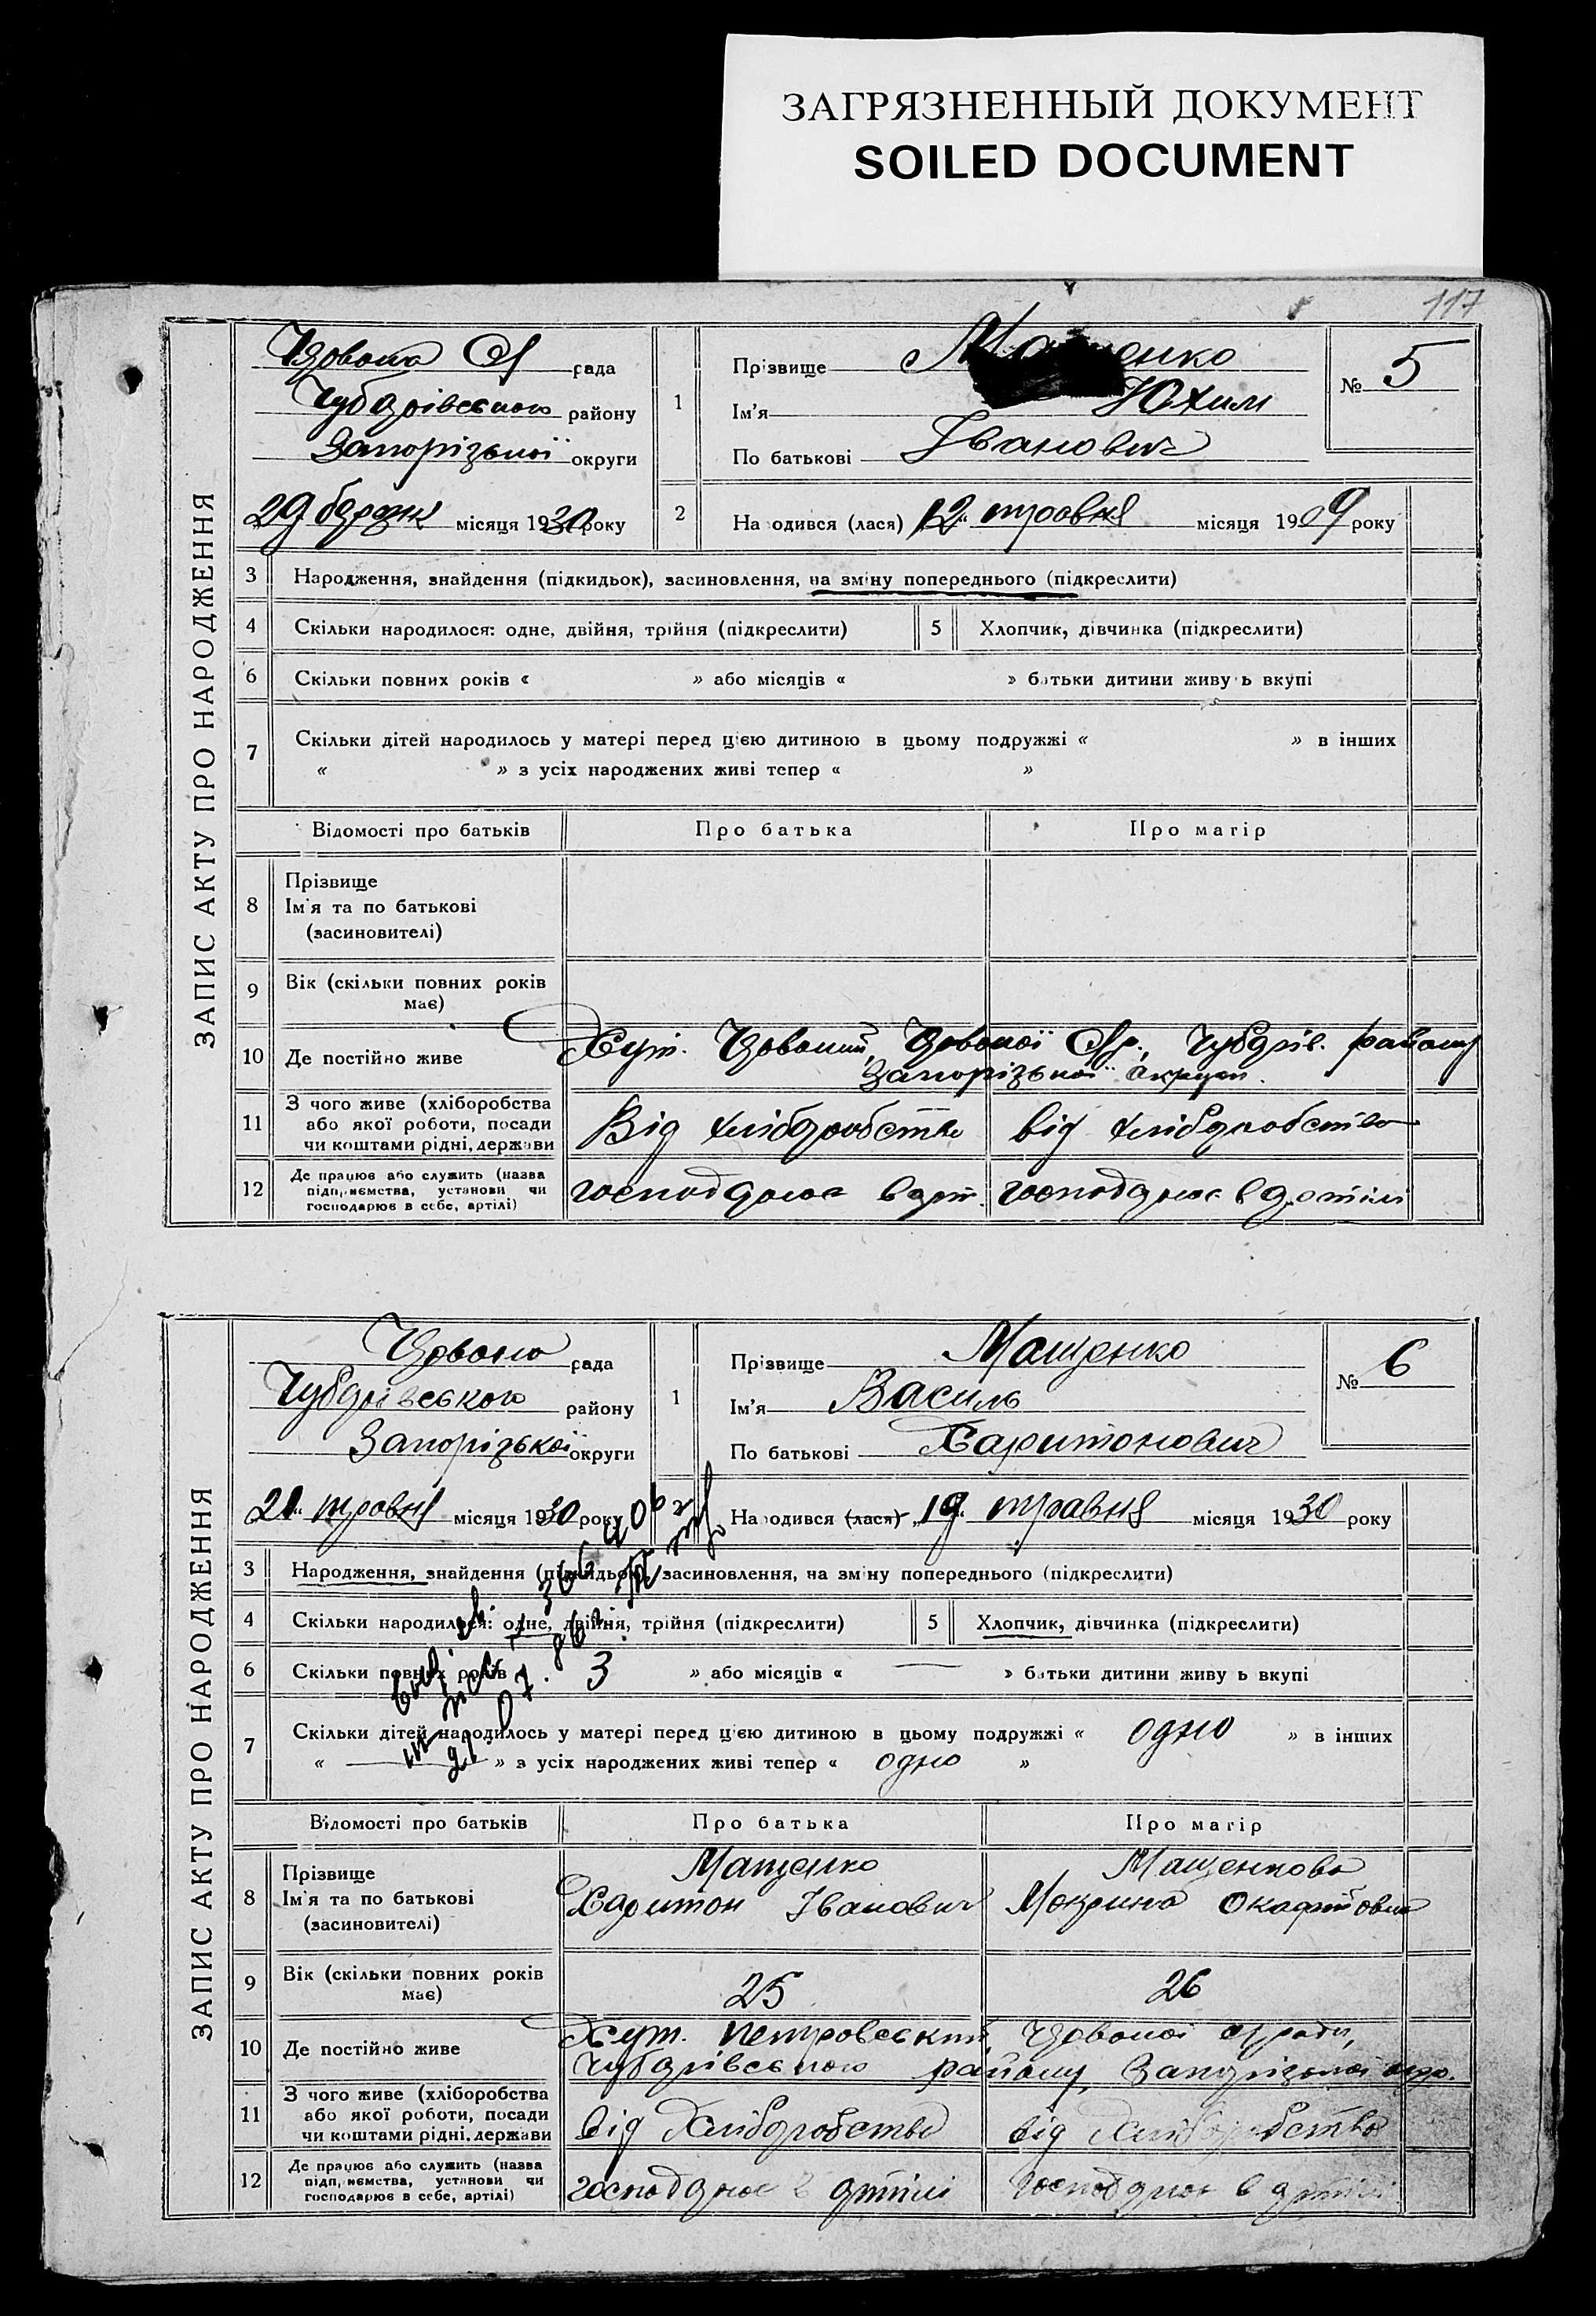 ЗАГРЯЗНЕННЫЙ ДОКУМЕНТ
SOILED DOCUMENT
117
ЗАПИС АКТУ ПРО НАРОДЖЕННЯ
рада
району
Запорізької округи
29 місяця 1930 року
1
Прізвище
Ім'я Юхим
По батькові Іванович
№ 5
2 Народився (лася) „12“ травня місяця 1909 року
3 Народження, знайдення (підкидьок), засиновлення, на зміну попереднього (підкреслити)
4 Скільки народилося: одне, двійня, трійня (підкреслити) 5 Хлопчик, дівчинка (підкреслити)
6 Скільки повних років « » або місяців « » батьки дитини живуть вкупі
7 Скільки дітей народилось у матері перед цією дитиною в цьому подружжі « » в інших
« » з усіх народжених живі тепер « »
Відомості про батьків Про батька Про матір
8 Прізвище
Ім'я та по батькові
(засиновителі)
9 Вік (скільки повних років
має)
10 Де постійно живе Хут. району
Запорізької
11 З чого живе (хліборобства
або якої роботи, посади
чи коштами рідні, держави
Від хліборобства від хліборобства
12 Де працює або служить (назва
підприємства, установи чи
господарює в себе, артілі)
ЗАПИС АКТУ ПРО НАРОДЖЕННЯ
рада
району
Запорізької округи
21 травня місяця 1930 року
1
Прізвище Мащенко
Ім'я Василь
По батькові Харитонович
№ 6
Народився (лася) „19“ травня місяця 1930 року
3 Народження, знайдення (підкидьок), засиновлення, на зміну попереднього (підкреслити)
4 Скільки народилося: одне, двійня, трійня (підкреслити) 5 Хлопчик, дівчинка (підкреслити)
6 Скільки повних років 3 » або місяців « — » батьки дитини живуть вкупі
7 Скільки дітей народилось у матері перед цією дитиною в цьому подружжі « одно » в інших
« — » з усіх народжених живі тепер « одно »
Відомості про батьків Про батька Про матір
8 Прізвище
Ім'я та по батькові
(засиновителі)
Мащенко
Харитон Іванович
Мащенкова
Мокрина
9 Вік (скільки повних років
має)
25 26
10 Де постійно живе Хут. Петровський,
району, Запорізької
11 З чого живе (хліборобства
або якої роботи, посади
чи коштами рідні, держави
від Хліборобства від Хліборобства
12 Де працює або служить (назва
підприємства, установи чи
господарює в себе, артілі)